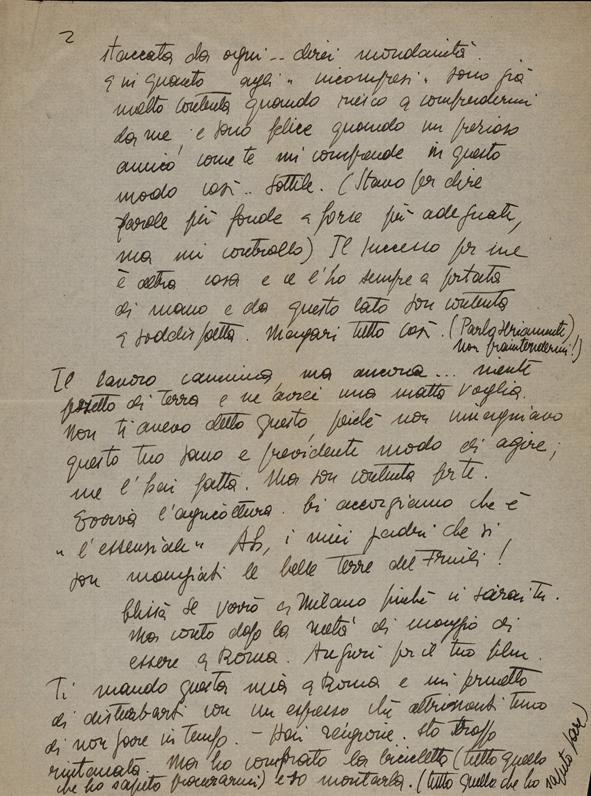 2
staccata da ogni -- direi mondanità.
e in quanto agli "incompresi" sono già
molto contenta quando riesco a comprendermi
da me e sono felice quando un prezioso
amico come te mi comprende in questo
modo così.. sottile. (Stavo per dire
parole più fonde e forse più adeguate,
ma mi controllo) Il successo per me
è altra cosa e ce l'ho sempre a portata
di mano e da questo lato son contenta
e soddisfatta. Magari tutto così. (Parlo seriamente,
non fraintendermi!)
Il lavoro cammina, ma ancora... niente
pezzetto di terra e ne avrei una matta voglia.
Non ti avevo detto questo, poiché non
questo tuo sano e previdente modo di agire;
me l'hai fatta. Ma son contenta per te.
Evviva l'agricoltura. Ci accorgiamo che è
"l'essenziale" Ah, i miei padri che si
son mangiati le belle terre del Friuli!
Chissà se verrò a Milano finché ci sarai tu.
Ma conto dopo la metà di maggio di
essere a Roma. Auguri per il tuo film.
Ti mando questa mia a Roma e mi permetto
di disturbarti con un espresso ché altrimenti temo
di non fare in tempo. - Hai ragione. Sto troppo
rintanata Ma ho comprato la bicicletta (tutto quello
che ho saputo procurarmi) e so montarla. (tutto quello che ho saputo far)